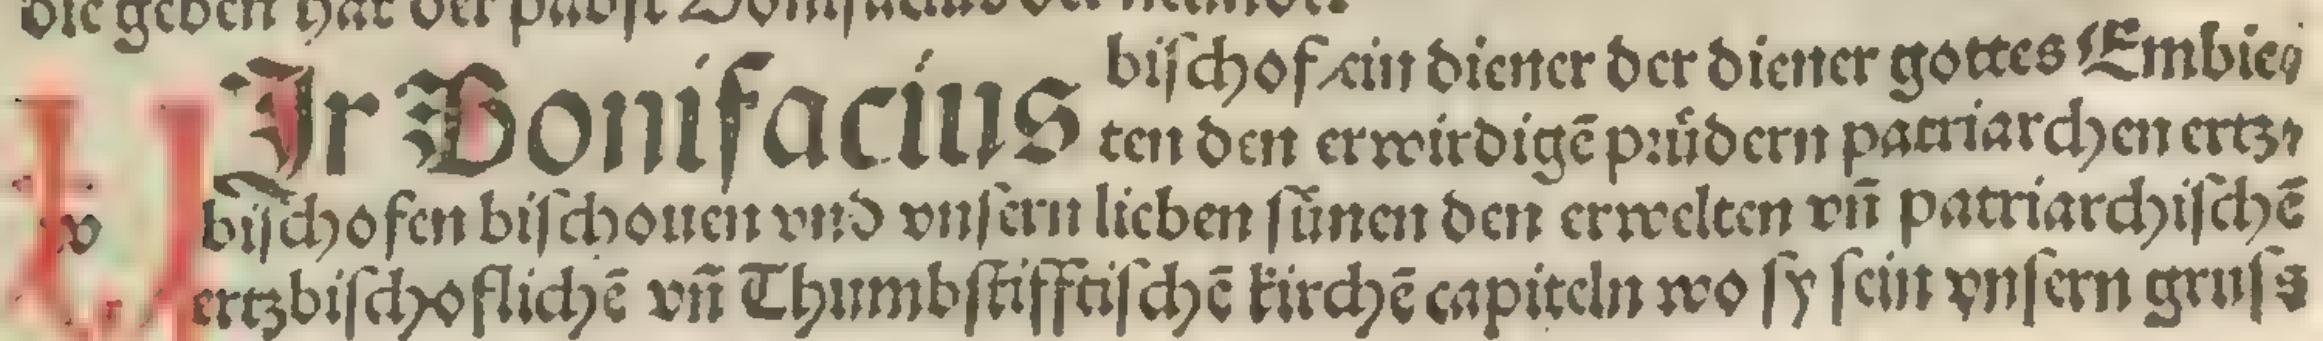 die geben hat der pabst Bonifacius der
WIr Bonifacius bischof/ein diener der diener gottes Embie
ten den erwirdigē průdern patriarchen ertz
bischofen bischouen vnd vnsern lieben sünen den erwelten vn̄ patriarchischē
ertzbischoflichē vn̄ Thumbstifftischē kirchē capiteln wo sy sein vnsern gruss